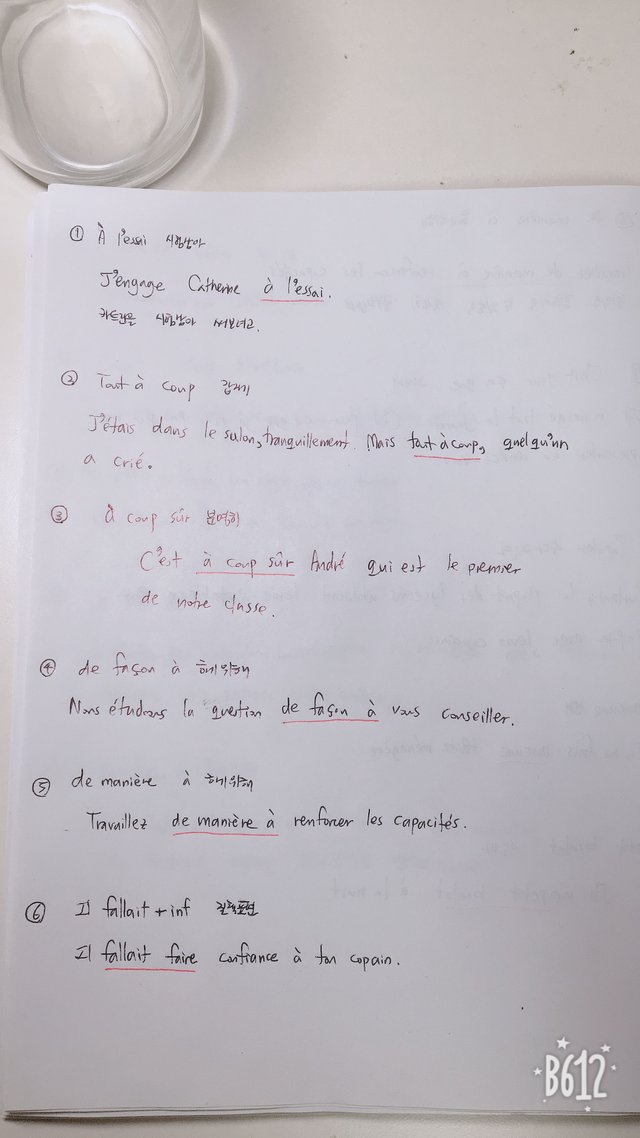 ① À l'essai 시험삼아
J'engage Catherine à l'essai.
시험삼아 써보려고.
② Tout à coup 갑자기
J'étais dans le salon, tranquillement. Mais tout à coup, quelqu'un
a crié.
③ À coup sûr 분명히
C'est à coup sûr André qui est le premier
de notre classe.
④ de façon à 하기위해
Nous étudions la question de façon à vous conseiller.
⑤ de manière à 하기위해
Travaillez de manière à renforcer les capacités.
⑥ Il fallait + inf 표현
Il fallait faire confiance à ton copain.
B612